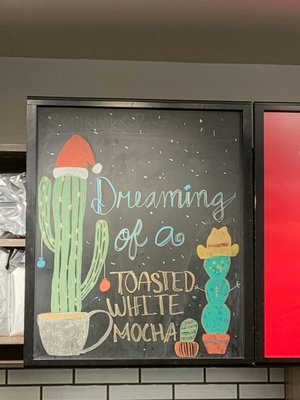 Dreaming
of a
TOASTED
WHITE
MOCHA